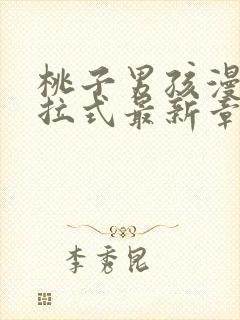 桃子男孩漫
拉式最新章
李秀昆